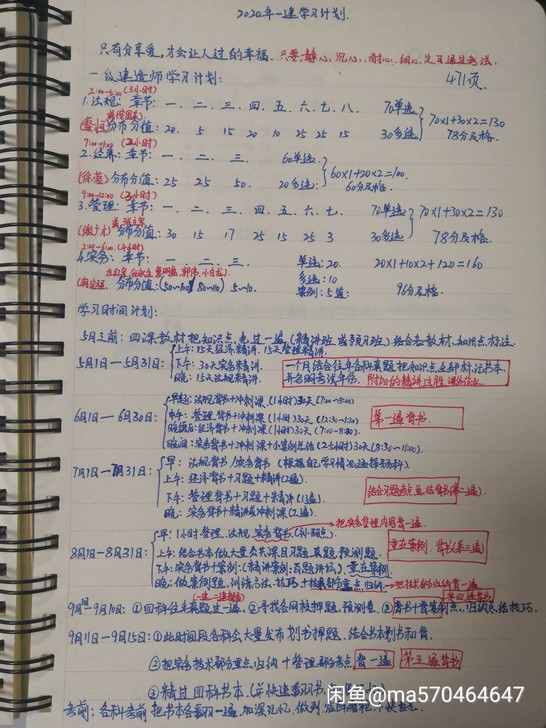 2020年一建学习计划.
只有分享爱,才会让人过的幸福.只要静心,沉心,耐心,细心,定可通过考法.
一级建造师学习计划:
471页.
2:00-5:00 (3小时)
1.法规:章节:一、二、三、四、五、六、七、八、 70单选
分布分值: 20 5 15 20 10 25 25 15 30多选
70×1+30×2=130
78分及格.
2.经济:章节:一、二、三. 60单选.
分布分值: 25 25 50. 20多选
60×1+20×2=100.
60分及格.
9:00-12:00 (3小时)
3.管理:章节:一、二、三、四、五、六、七. 70单选
分布分值: 30 15 17 25 15 25 3 30多选
70×1+30×2=130
78分及格.
2:00-6:00 (4小时)
4.实务:章节:一、二、三. 单选:20. 20×1+10×2+120=160
多选:10
分布分值: 5~10. 案例:5道 96分及格.
学习时间计划:
5月之前:四课教材把知识点,先过一遍,(精讲班或预习班).结合看教材,知识点标注.
5月1日—5月31日: 上午:15天经济精讲.15天管理精讲.
下午:30天实务精讲.
晚:15天法规精讲.
一个月结合往年各科真题把知识点全部标注书本,并各细考试年份.
6月1日—6月30日: 早起:法规背书+冲刺课(1小时)30天(7:00-8:00)
中午:管理.背书+冲刺课(1小时)30天(12:30-1:30)
晚饭后:经济背书+冲刺课(1小时)30天(7:00-8:00)
晚间:实务背书+冲刺课+小案例总结(2.5小时)30天(8:30-11:00).
第一遍背书
7月1日—7月31日: 早:法规背书/实务背书(根据自己学习情况选择易弱科).
上午:经济背书+习题+精讲(2遍).
下午:管理背书+习题+精讲(1遍).
晚:实务背书+精讲或冲刺课(2遍).
8月1日-8月31日: 早:1小时管理.法规.实务背书
把实务管理内容背一遍.
上午:结合书本做大量公共课目习题.真题.预测题.
下午:实务背书+案例(精讲案例:百题讲坛).重在案例.
晚:做案例题,训练方法,技巧
重在案例.背书(第三遍)
9月1日-9月10日:①四科往年真题过一遍.②寻找各网校押题.预测卷.
9月11日-9月15日:①此时间段各科会大量发布划书押题.结合书本划书和背.
②把实务技术部分重点归纳+管理部分考点背一遍 第五遍背书
③精过四科书本.
考前:各科考前把书本全看一遍,加深记忆,做到
闲鱼@ma570464647